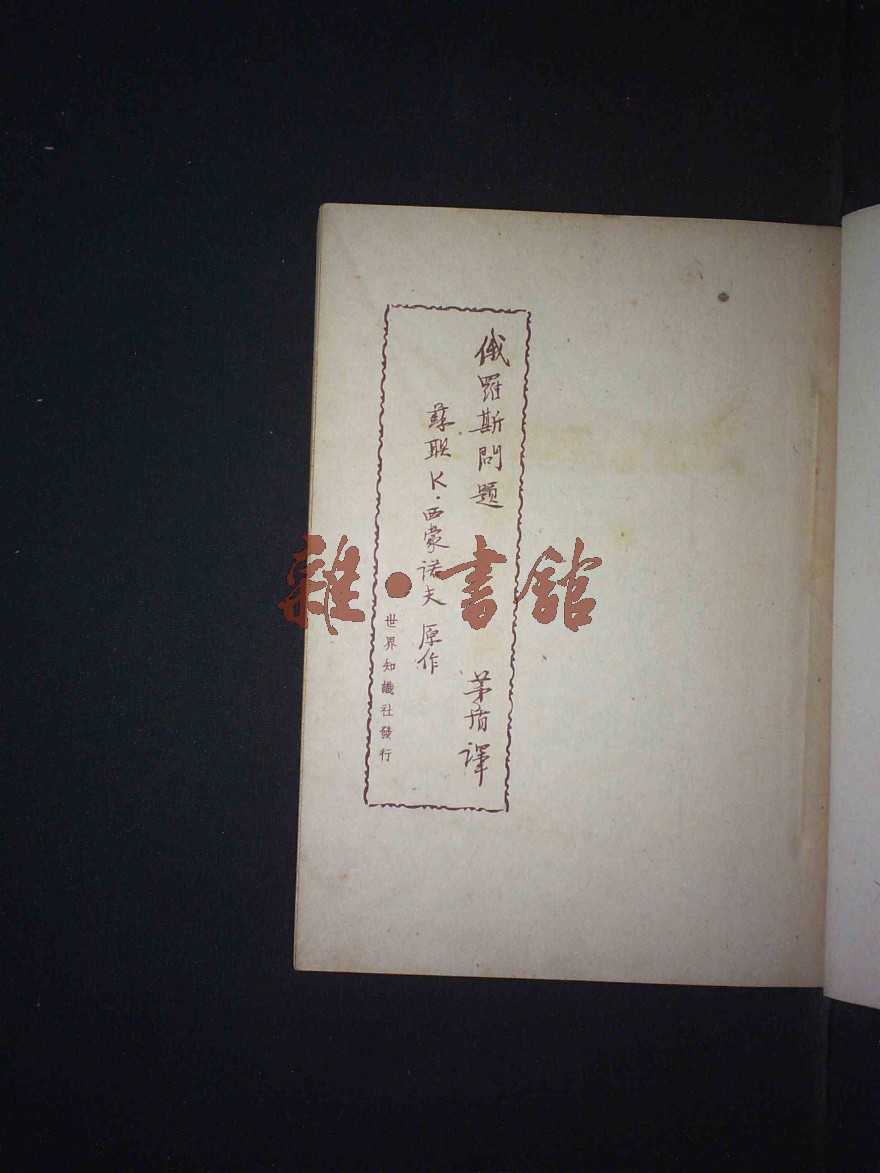 俄羅斯問題 茅盾譯
蘇联 K·西蒙诺夫 原作
世界知識社發行
雜·書館